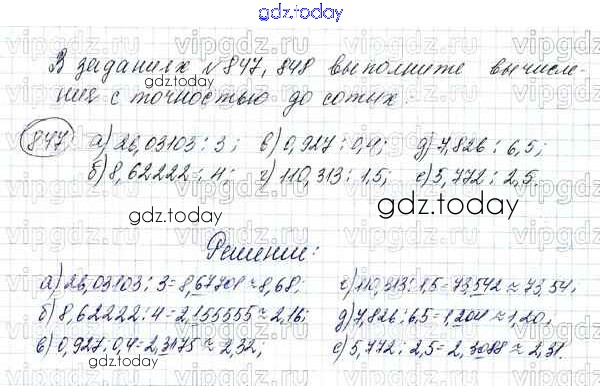 gdz.today
В заданиях №847, 848 выполните вычисле-
ния с точностью до сотых:
gdz.today
847 а) 26,03103 : 3; в) 0,927 : 0,4; д) 7,826 : 6,5;
б) 8,62222 : 4; г) 110,313 : 1,5; е) 5,772 : 2,5.
gdz.today
gdz.today
Решение:
а) 26,03103 : 3 = 8,67701 ≈ 8,68; г) 110,313 : 1,5 = 73,542 ≈ 73,54;
б) 8,62222 : 4 = 2,155555 ≈ 2,16; д) 7,826 : 6,5 = 1,204 ≈ 1,20;
в) 0,927 : 0,4 = 2,3175 ≈ 2,32; е) 5,772 : 2,5 = 2,3088 ≈ 2,31.
gdz.today